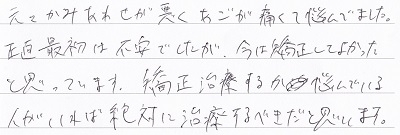 元々かみあわせが悪くあごが痛くて悩んでました。
正直最初は不安でしたが、今は矯正してよかった
と思っています。矯正治療するか悩んでいる
人がいれば絶対に治療するべきだと思います。